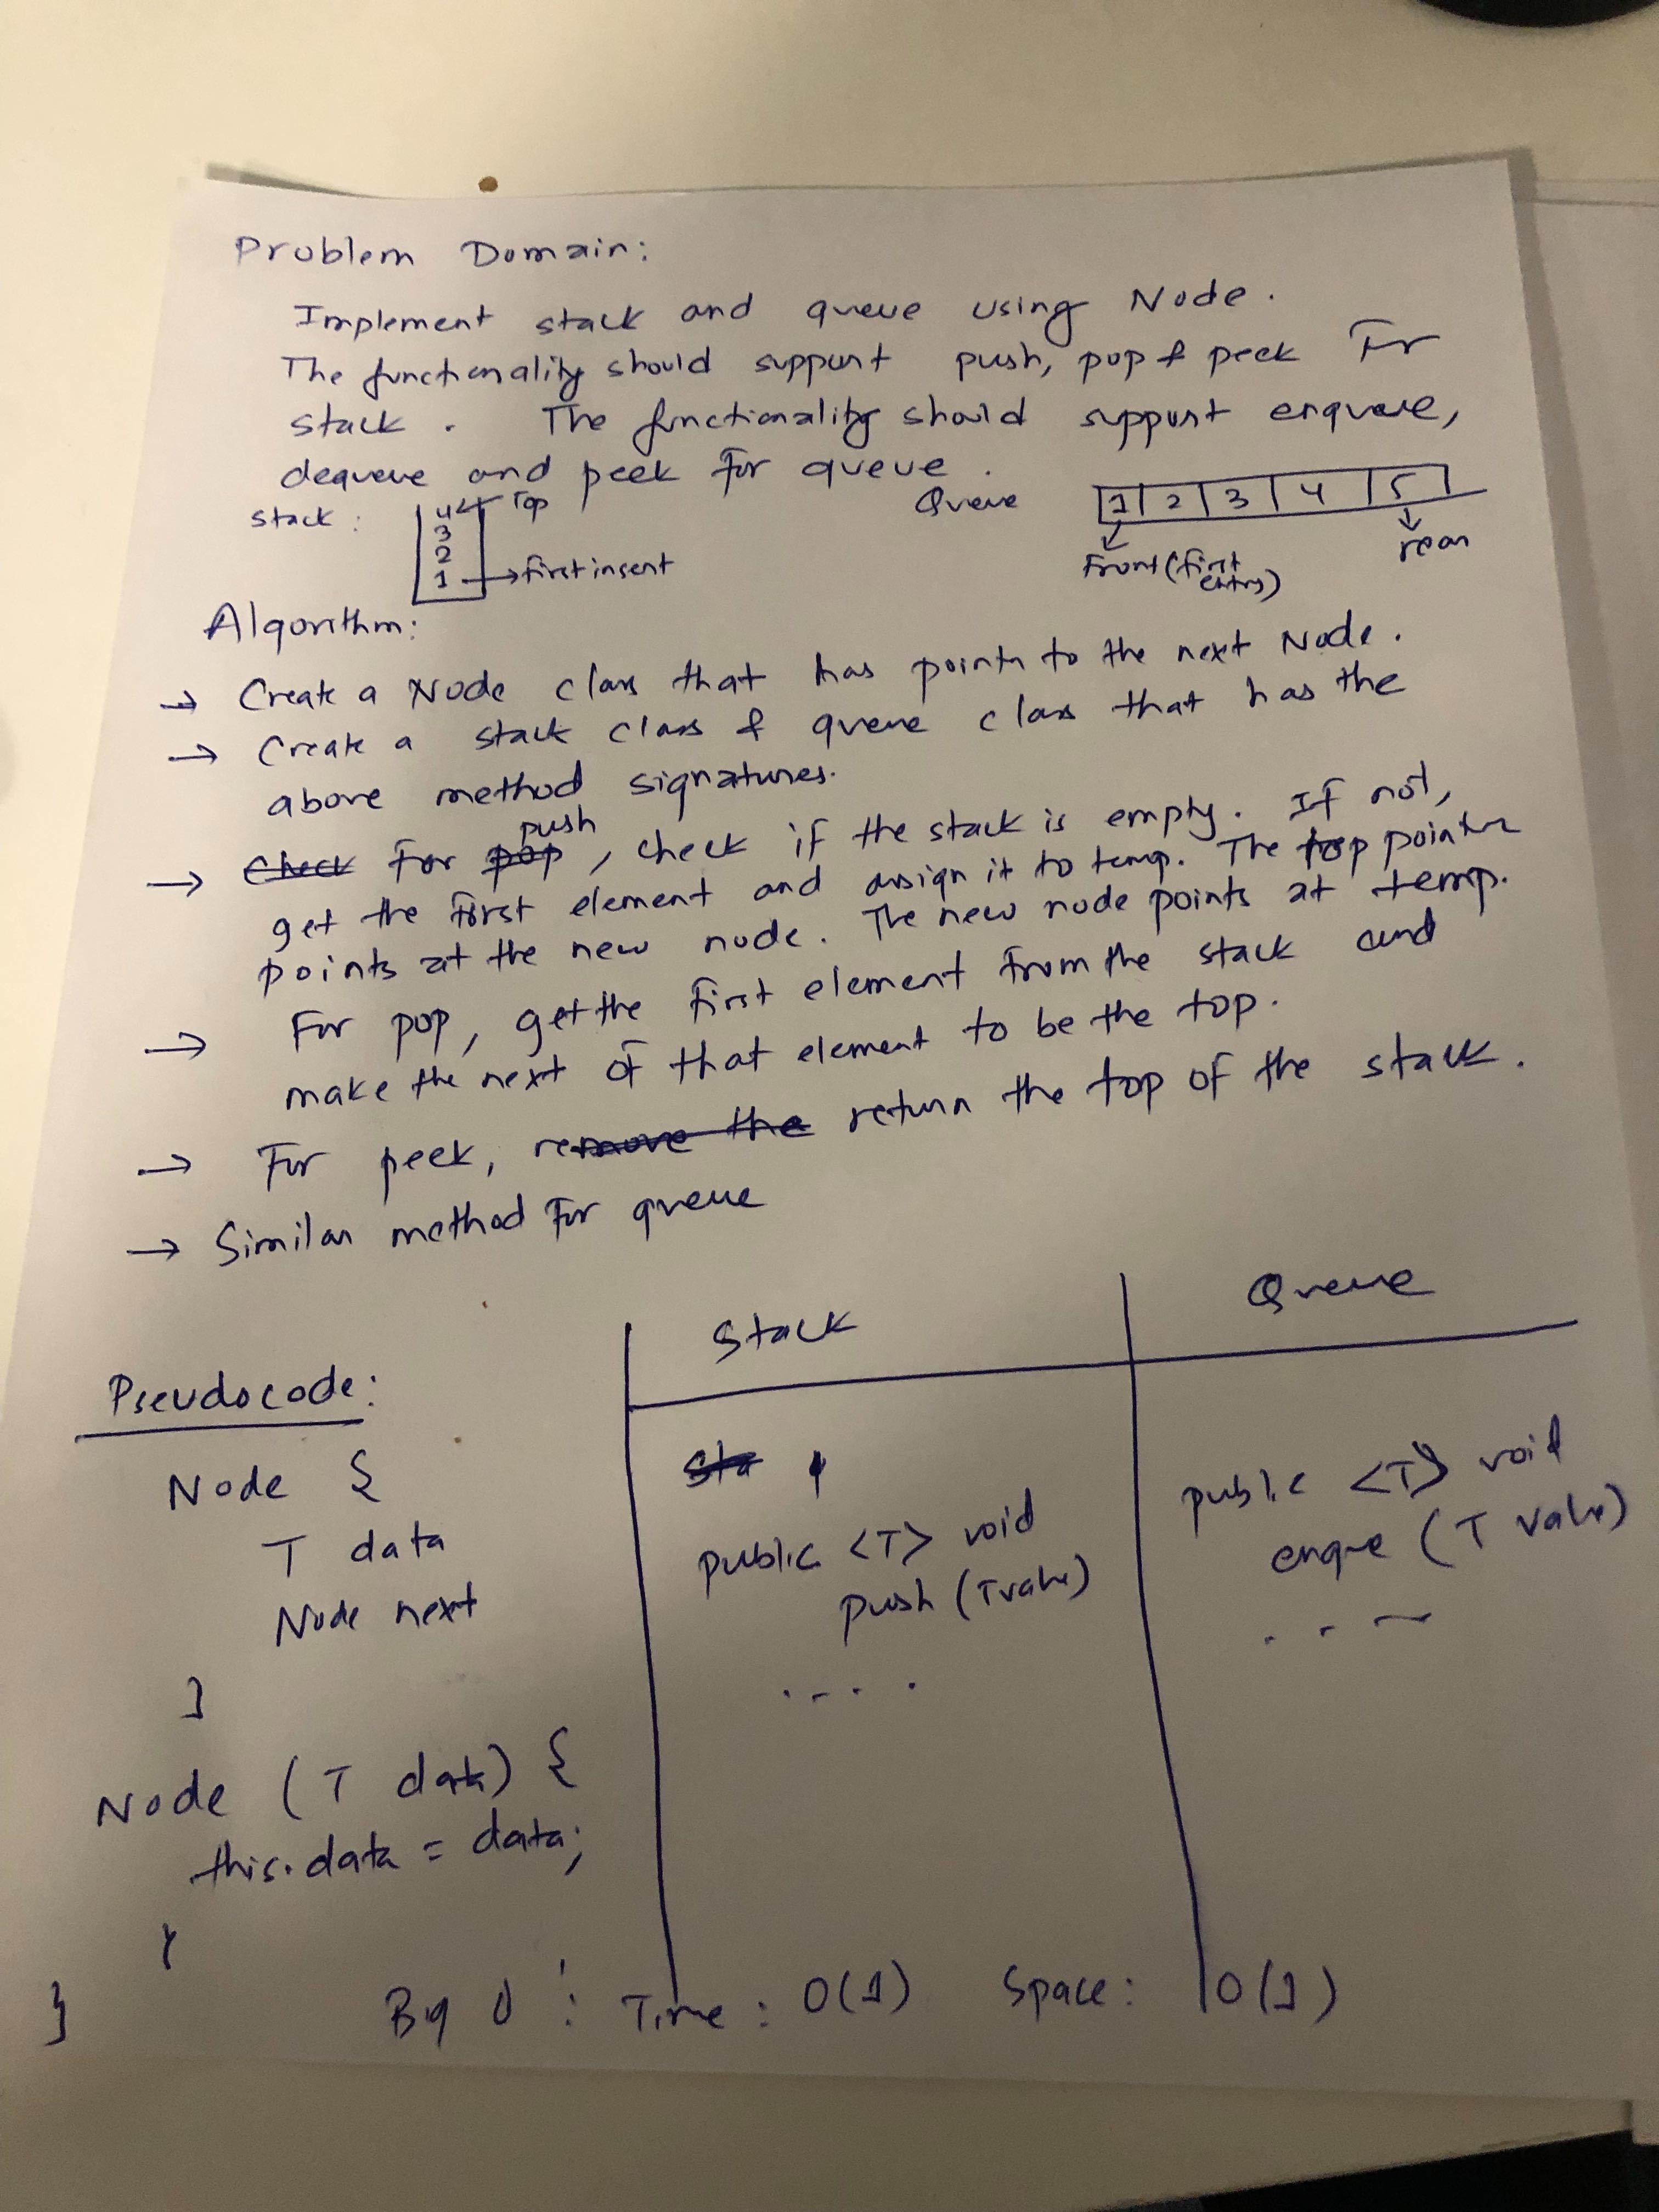 Problem Domain:
Implement stack and queue using Node.
The functionality should support push, pop & peek For
stack. The functionality should support enqueue,
dequeue and peek for queue.
stack:
4 ← Top
3
2
1 → first insert
Queue
1 2 3 4 5
Front (first entry)
rear
Algorithm:
→ Create a Node class that has pointer to the next Node.
→ Create a stack class & queue class that has the
above method signatures.
→ Check For pop push, check if the stack is empty. If not,
get the first element and assign it to temp. The top pointer
points at the new node. The new node points at temp.
→ For pop, get the first element from the stack and
make the next of that element to be the top.
→ For peek, remove the return the top of the stack.
→ Similar method For queue
Pseudocode:
Node {
T data
Node next
}
Node (T data) {
this.data = data;
}
}
Stack
Sta
public <T> void
push (T value)
. . . .
Queue
public <T> void
enque (T value)
. . -
Big O : Time : O(1) Space : O(1)